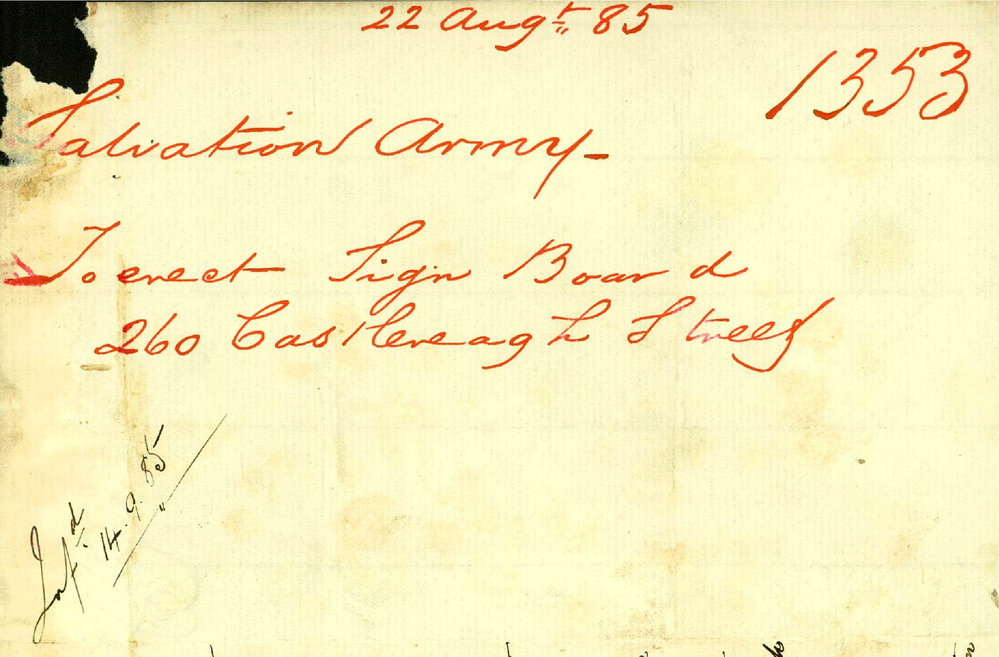 22 Augt 85
1353
Salvation Army-
To erect Sign Board
260 Castlereagh Street
Infd
14.9.85